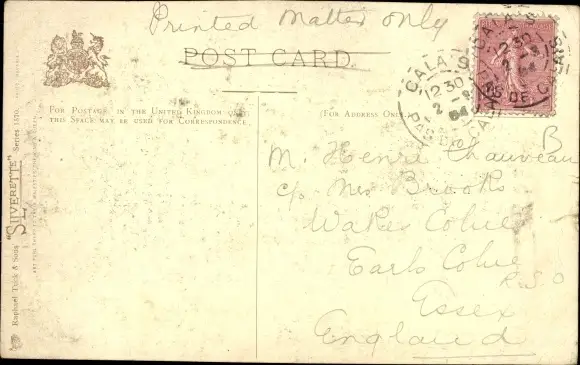 Printed Matter only
POST CARD.
FOR POSTAGE IN THE UNITED KINGDOM ONLY
THIS SPACE MAY BE USED FOR CORRESPONDENCE.
(FOR ADDRESS ONLY.)
CALAIS
12 30
2
04
PAS DE CALAIS
CALAIS
12 30
PAS DE CALAIS
B
M. Henri Chauveau
c/o Mrs Brooks
Wakes Colne
Earls Colne
R.S.O
Essex
England
Raphael Tuck & Sons "SILVERETTE" Series